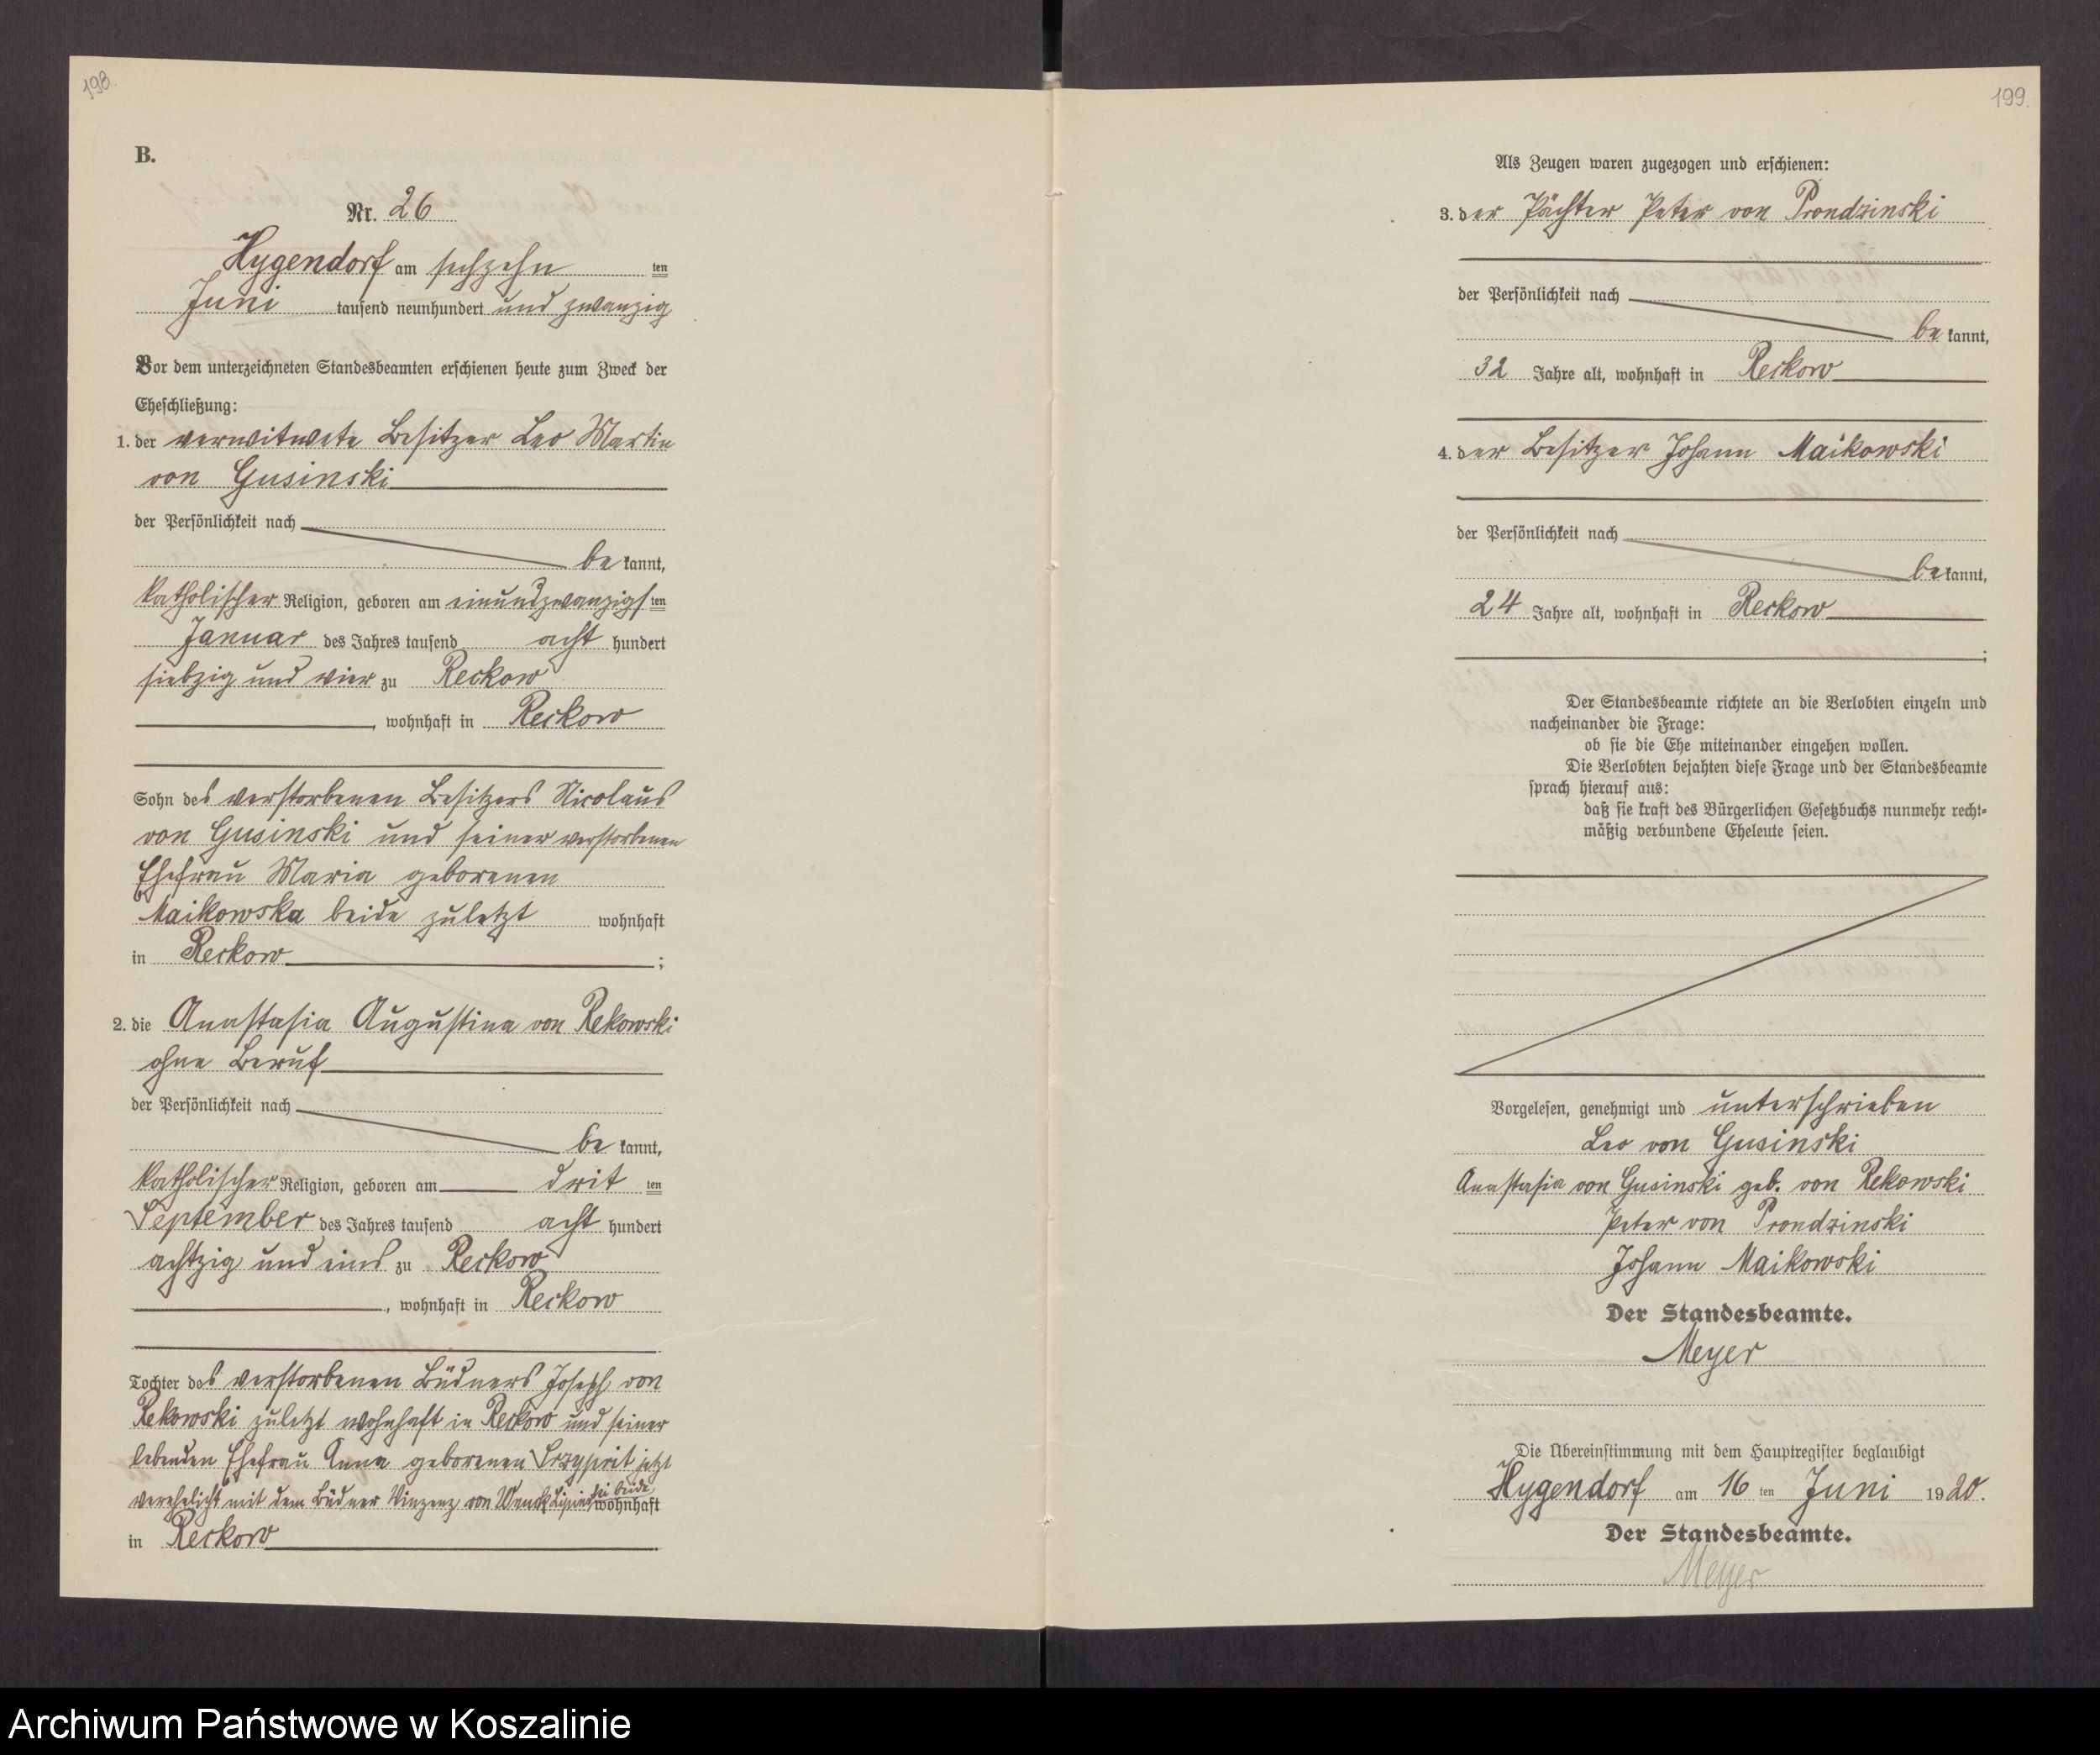 198.
B.
Nr. 26
Hygendorf am sechzehn ten
Juni tausend neunhundert und zwanzig
Vor dem unterzeichneten Standesbeamten erschienen heute zum Zweck der
Eheschließung:
1. der verwitwete Besitzer Leo Martin
von Gusinski
der Persönlichkeit nach
be kannt,
katholischer Religion, geboren am einundzwanzigs ten
Januar des Jahres tausend acht hundert
siebzig und vier zu Reckow
, wohnhaft in Reckow
Sohn des verstorbenen Besitzers Nicolaus
von Gusinski und seiner verstorbenen
Ehefrau Maria geborenen
Maikowska beide zuletzt wohnhaft
in Reckow ;
2. die Anastasia Augustina von Rekowski
ohne Beruf
der Persönlichkeit nach
be kannt,
katholischer Religion, geboren am drit ten
September des Jahres tausend acht hundert
achtzig und eins zu Reckow
, wohnhaft in Reckow
Tochter des verstorbenen Büdners Joseph von
Rekowski zuletzt wohnhaft in Reckow und seiner
lebenden Ehefrau Anna geborenen jetzt
verehelicht mit dem Büdner Vinzenz von beide wohnhaft
in Reckow
199.
Als Zeugen waren zugezogen und erschienen:
3. der Pächter Peter von Prondzinski
der Persönlichkeit nach
be kannt,
32 Jahre alt, wohnhaft in Reckow
4. der Besitzer Johann Maikowski
der Persönlichkeit nach
be kannt,
24 Jahre alt, wohnhaft in Reckow
;
Der Standesbeamte richtete an die Verlobten einzeln und
nacheinander die Frage:
ob sie die Ehe miteinander eingehen wollen.
Die Verlobten bejahten diese Frage und der Standesbeamte
sprach hierauf aus:
daß sie kraft des Bürgerlichen Gesetzbuchs nunmehr recht-
mäßig verbundene Eheleute seien.
Vorgelesen, genehmigt und unterschrieben
Leo von Gusinski
Anastasia von Gusinski geb. von Rekowski
Peter von Prondzinski
Johann Maikowski
Der Standesbeamte.
Meyer
Die Übereinstimmung mit dem Hauptregister beglaubigt
Hygendorf am 16 ten Juni 1920.
Der Standesbeamte.
Meyer
Archiwum Państwowe w Koszalinie